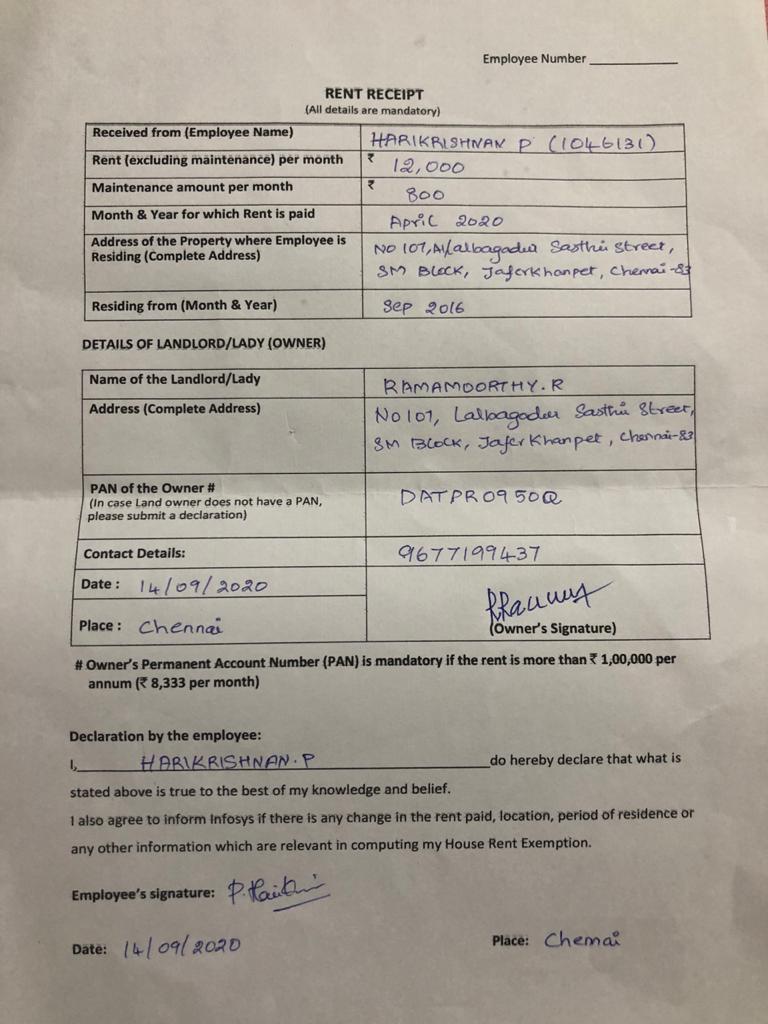 Employee Number
RENT RECEIPT
(All details are mandatory)
Received from (Employee Name) HARIKRISHNAN P (1046131)
Rent (excluding maintenance) per month ₹ 12,000
Maintenance amount per month ₹ 800
Month & Year for which Rent is paid April 2020
Address of the Property where Employee is No 107, Sasthri Street,
Residing (Complete Address) SM Block, Jaferkhanpet, Chennai-83
Residing from (Month & Year) Sep 2016
DETAILS OF LANDLORD/LADY (OWNER)
Name of the Landlord/Lady RAMAMOORTHY.R
Address (Complete Address) No 107, Sasthri Street,
SM Block, Jafer Khanpet, Chennai-83
PAN of the Owner # DATPR0950Q
(In case Land owner does not have a PAN,
please submit a declaration)
Contact Details: 9677199437
Date : 14/09/2020
Place : Chennai
(Owner's Signature)
# Owner's Permanent Account Number (PAN) is mandatory if the rent is more than ₹ 1,00,000 per
annum (₹ 8,333 per month)
Declaration by the employee:
I, HARIKRISHNAN.P do hereby declare that what is
stated above is true to the best of my knowledge and belief.
I also agree to inform Infosys if there is any change in the rent paid, location, period of residence or
any other information which are relevant in computing my House Rent Exemption.
Employee's signature:
Date: 14/09/2020 Place: Chennai